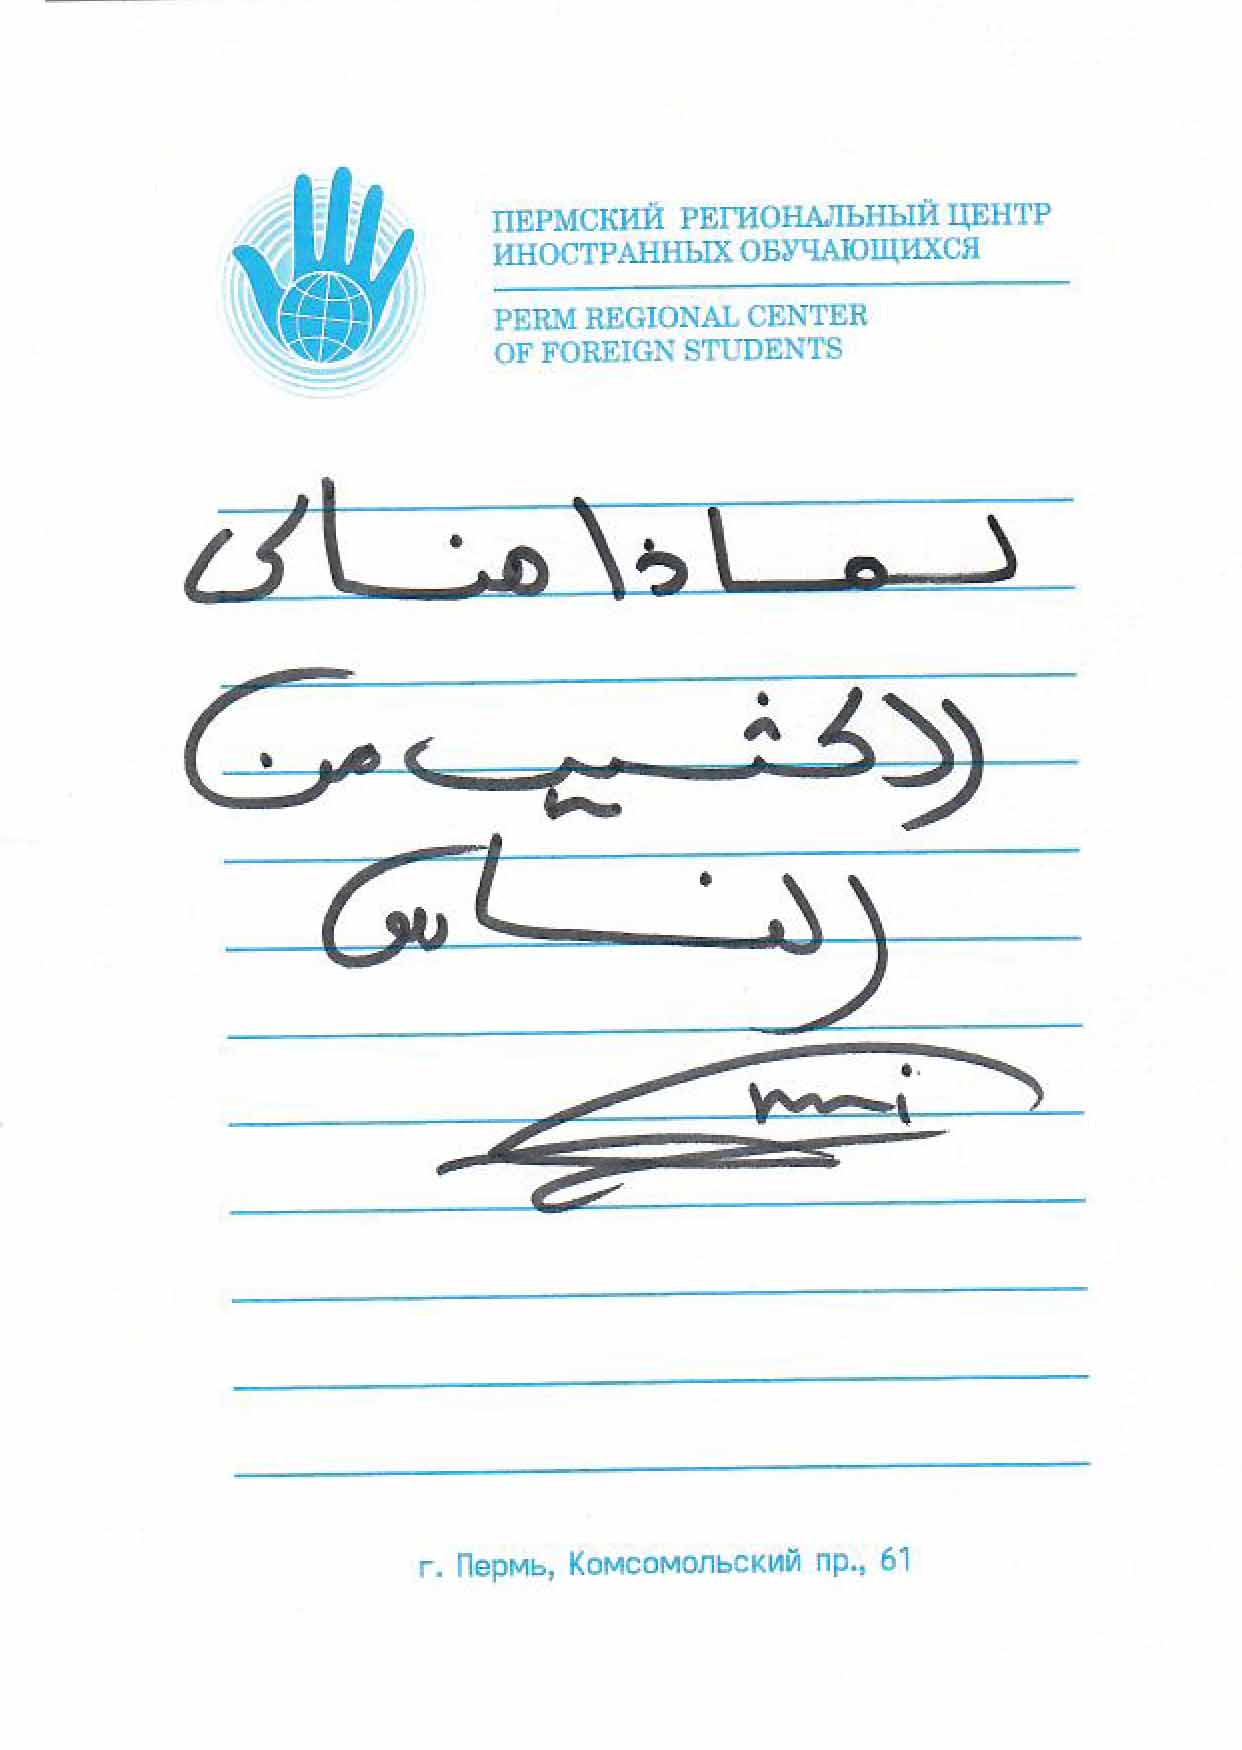 ПЕРМСКИЙ РЕГИОНАЛЬНЫЙ ЦЕНТР
ИНОСТРАННЫХ ОБУЧАЮЩИХСЯ
PERM REGIONAL CENTER
OF FOREIGN STUDENTS
لماذا هناك
الكثير من
الناس
г. Пермь, Комсомольский пр., 61